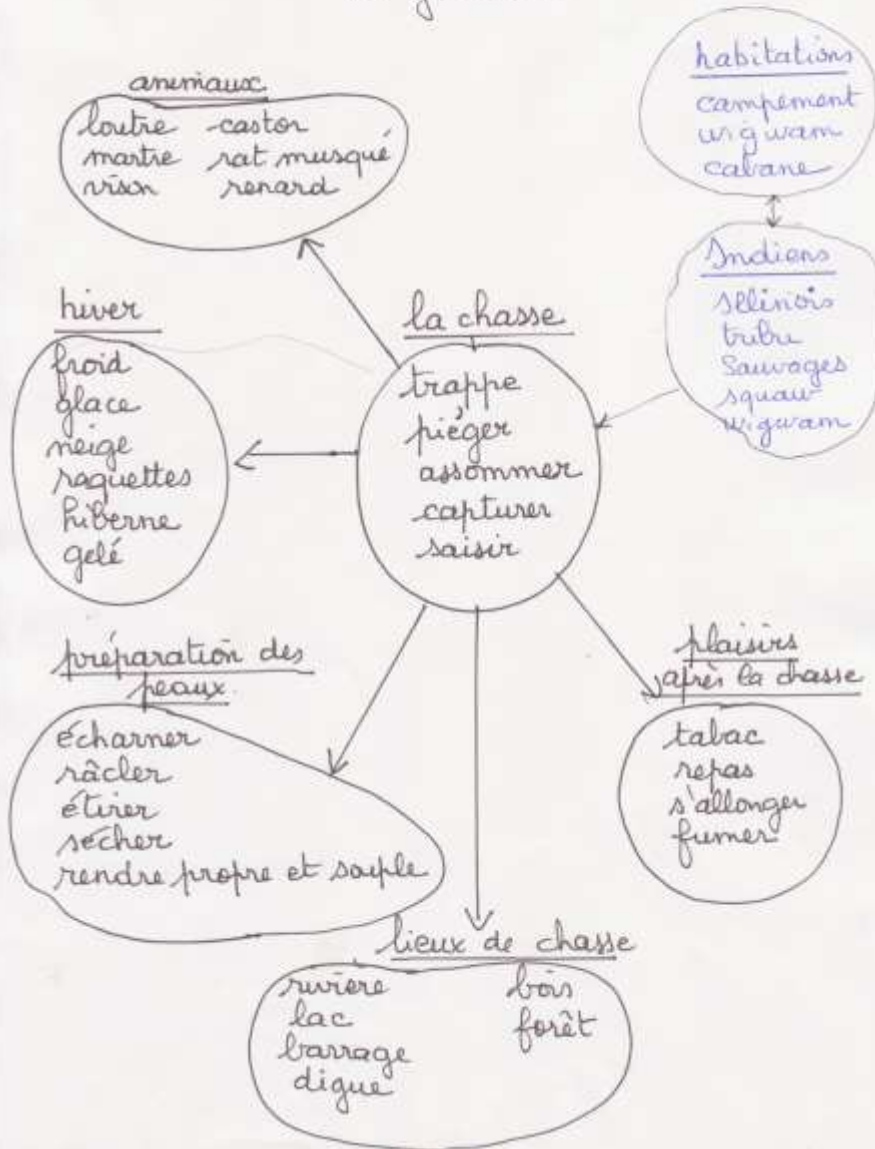 habitations
campement
wigwam
cabane
animaux
loutre castor
martre rat musqué
vison renard
Indiens
Illinois
tribu
Sauvages
squaw
wigwam
hiver
froid
glace
neige
raquettes
hiberne
gelé
la chasse
trappe
piéger
assommer
capturer
saisir
préparation des
peaux
écharner
râcler
étirer
sécher
rendre propre et souple
plaisirs
après la chasse
tabac
repas
s'allonger
fumer
lieux de chasse
rivière bois
lac forêt
barrage
digue